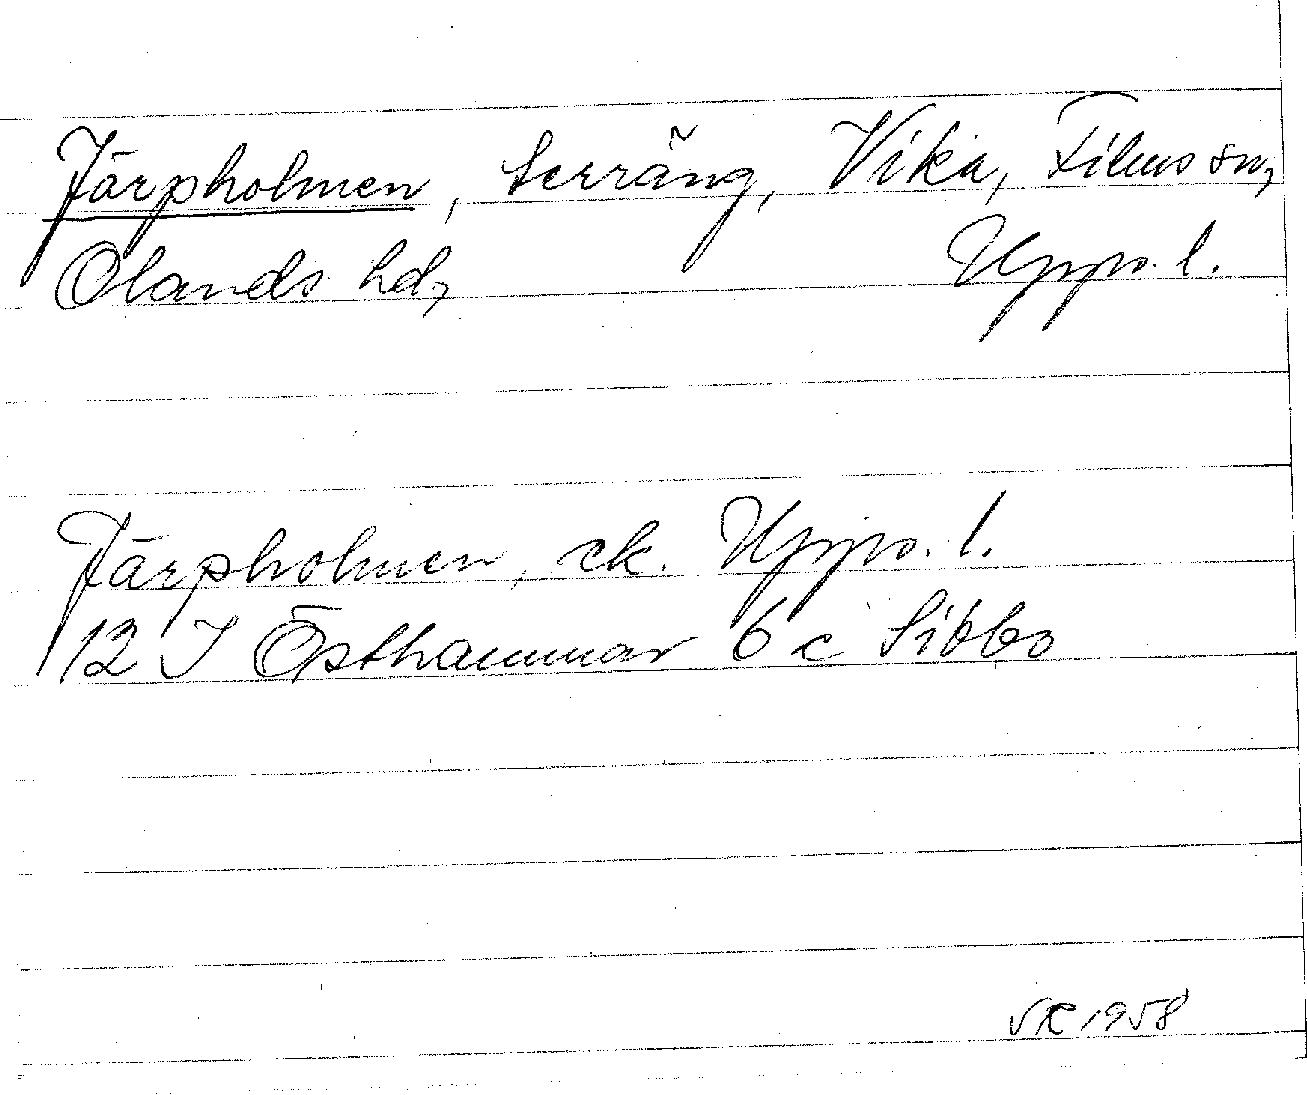 Järpholmen, terräng, Vika, Films sn,
Olands hd, Upps. l.
Järpholmen, ek. Upps. l.
12 I Östhammar 6 c Sibbo
VR 1958